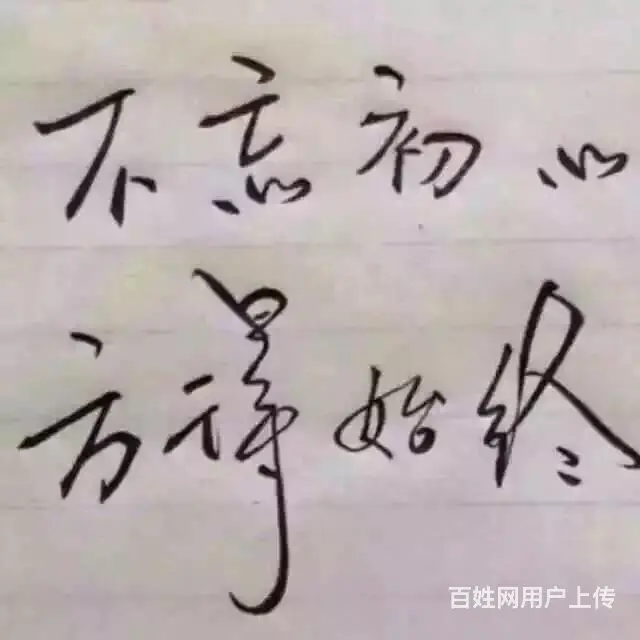 不忘初心
方得始终
百姓网用户上传